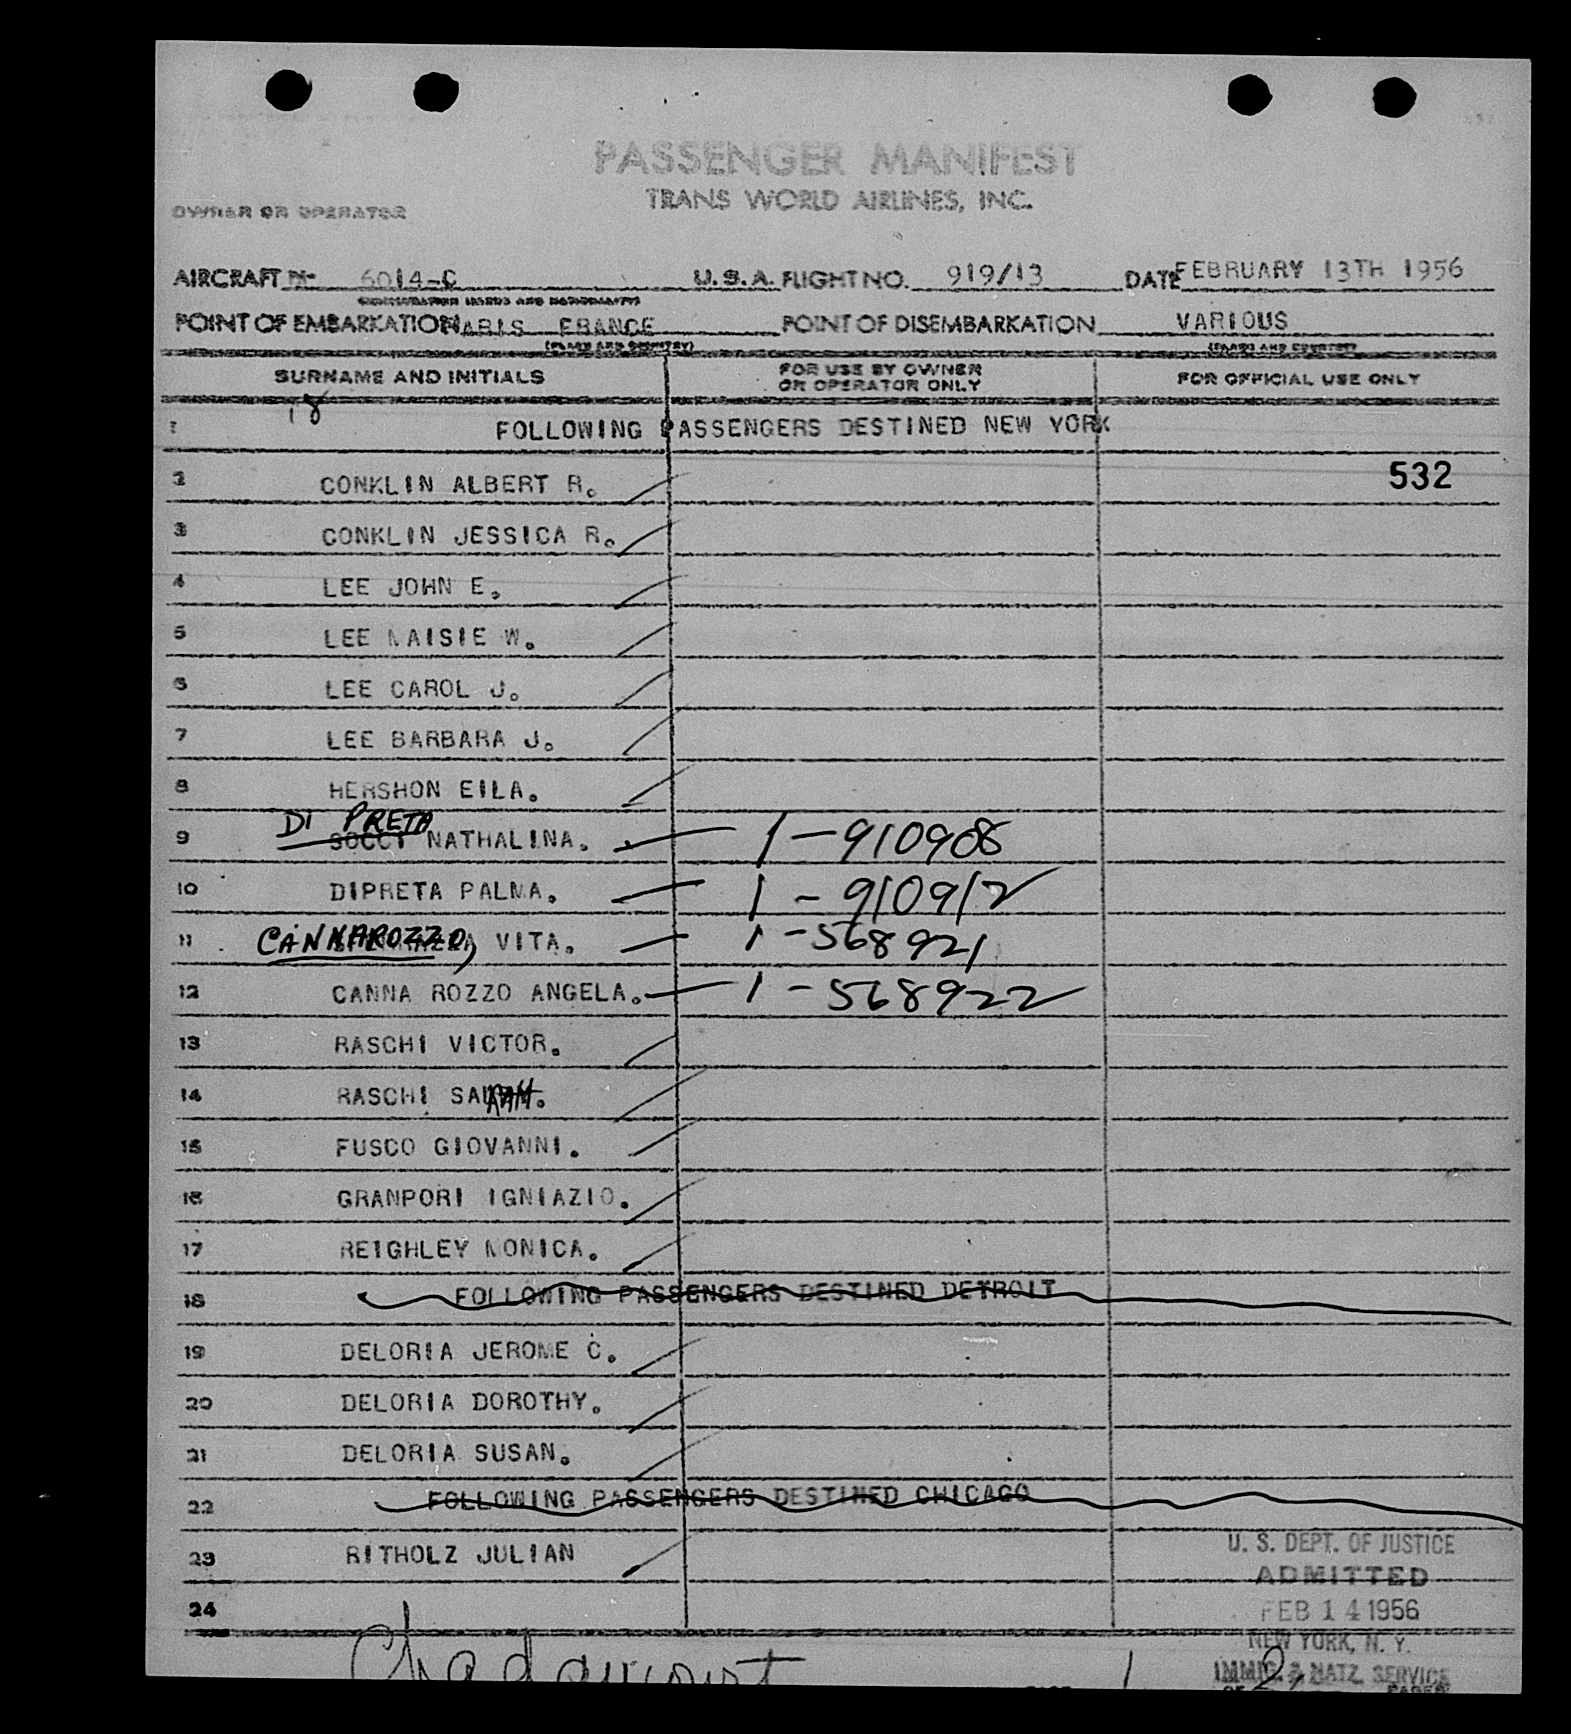 PASSENGER MANIFEST
TRANS WORLD AIRLINES, INC.
OWNER OR OPERATOR
AIRCRAFT N- 6014-C U.S.A. FLIGHT NO. 919/13 DATE FEBRUARY 13TH 1956
POINT OF EMBARKATION PARIS FRANCE POINT OF DISEMBARKATION VARIOUS
(PLACE AND COUNTRY) (PLACE AND COUNTRY)
SURNAME AND INITIALS FOR USE BY OWNER OR OPERATOR ONLY FOR OFFICIAL USE ONLY
18
1 FOLLOWING PASSENGERS DESTINED NEW YORK
532
2 CONKLIN ALBERT R.
3 CONKLIN JESSICA R.
4 LEE JOHN E.
5 LEE MAISIE W.
6 LEE CAROL J.
7 LEE BARBARA J.
8 HERSHON EILA.
DI PRETA
9 SOCCI NATHALINA. 1-910908
10 DIPRETA PALMA. 1-910912
11 CANNAROZZO, VITA. 1-568921
12 CANNA ROZZO ANGELA. 1-568922
13 RASCHI VICTOR.
14 RASCHI SARAH.
15 FUSCO GIOVANNI.
16 GRANPORI IGNIAZIO.
17 REIGHLEY MONICA.
18 FOLLOWING PASSENGERS DESTINED DETROIT
19 DELORIA JEROME C.
20 DELORIA DOROTHY.
21 DELORIA SUSAN.
22 FOLLOWING PASSENGERS DESTINED CHICAGO
23 RITHOLZ JULIAN
24
U. S. DEPT. OF JUSTICE
ADMITTED
FEB 14 1956
NEW YORK, N. Y.
IMMIG. & NATZ. SERVICE
1 2
OF PAGES